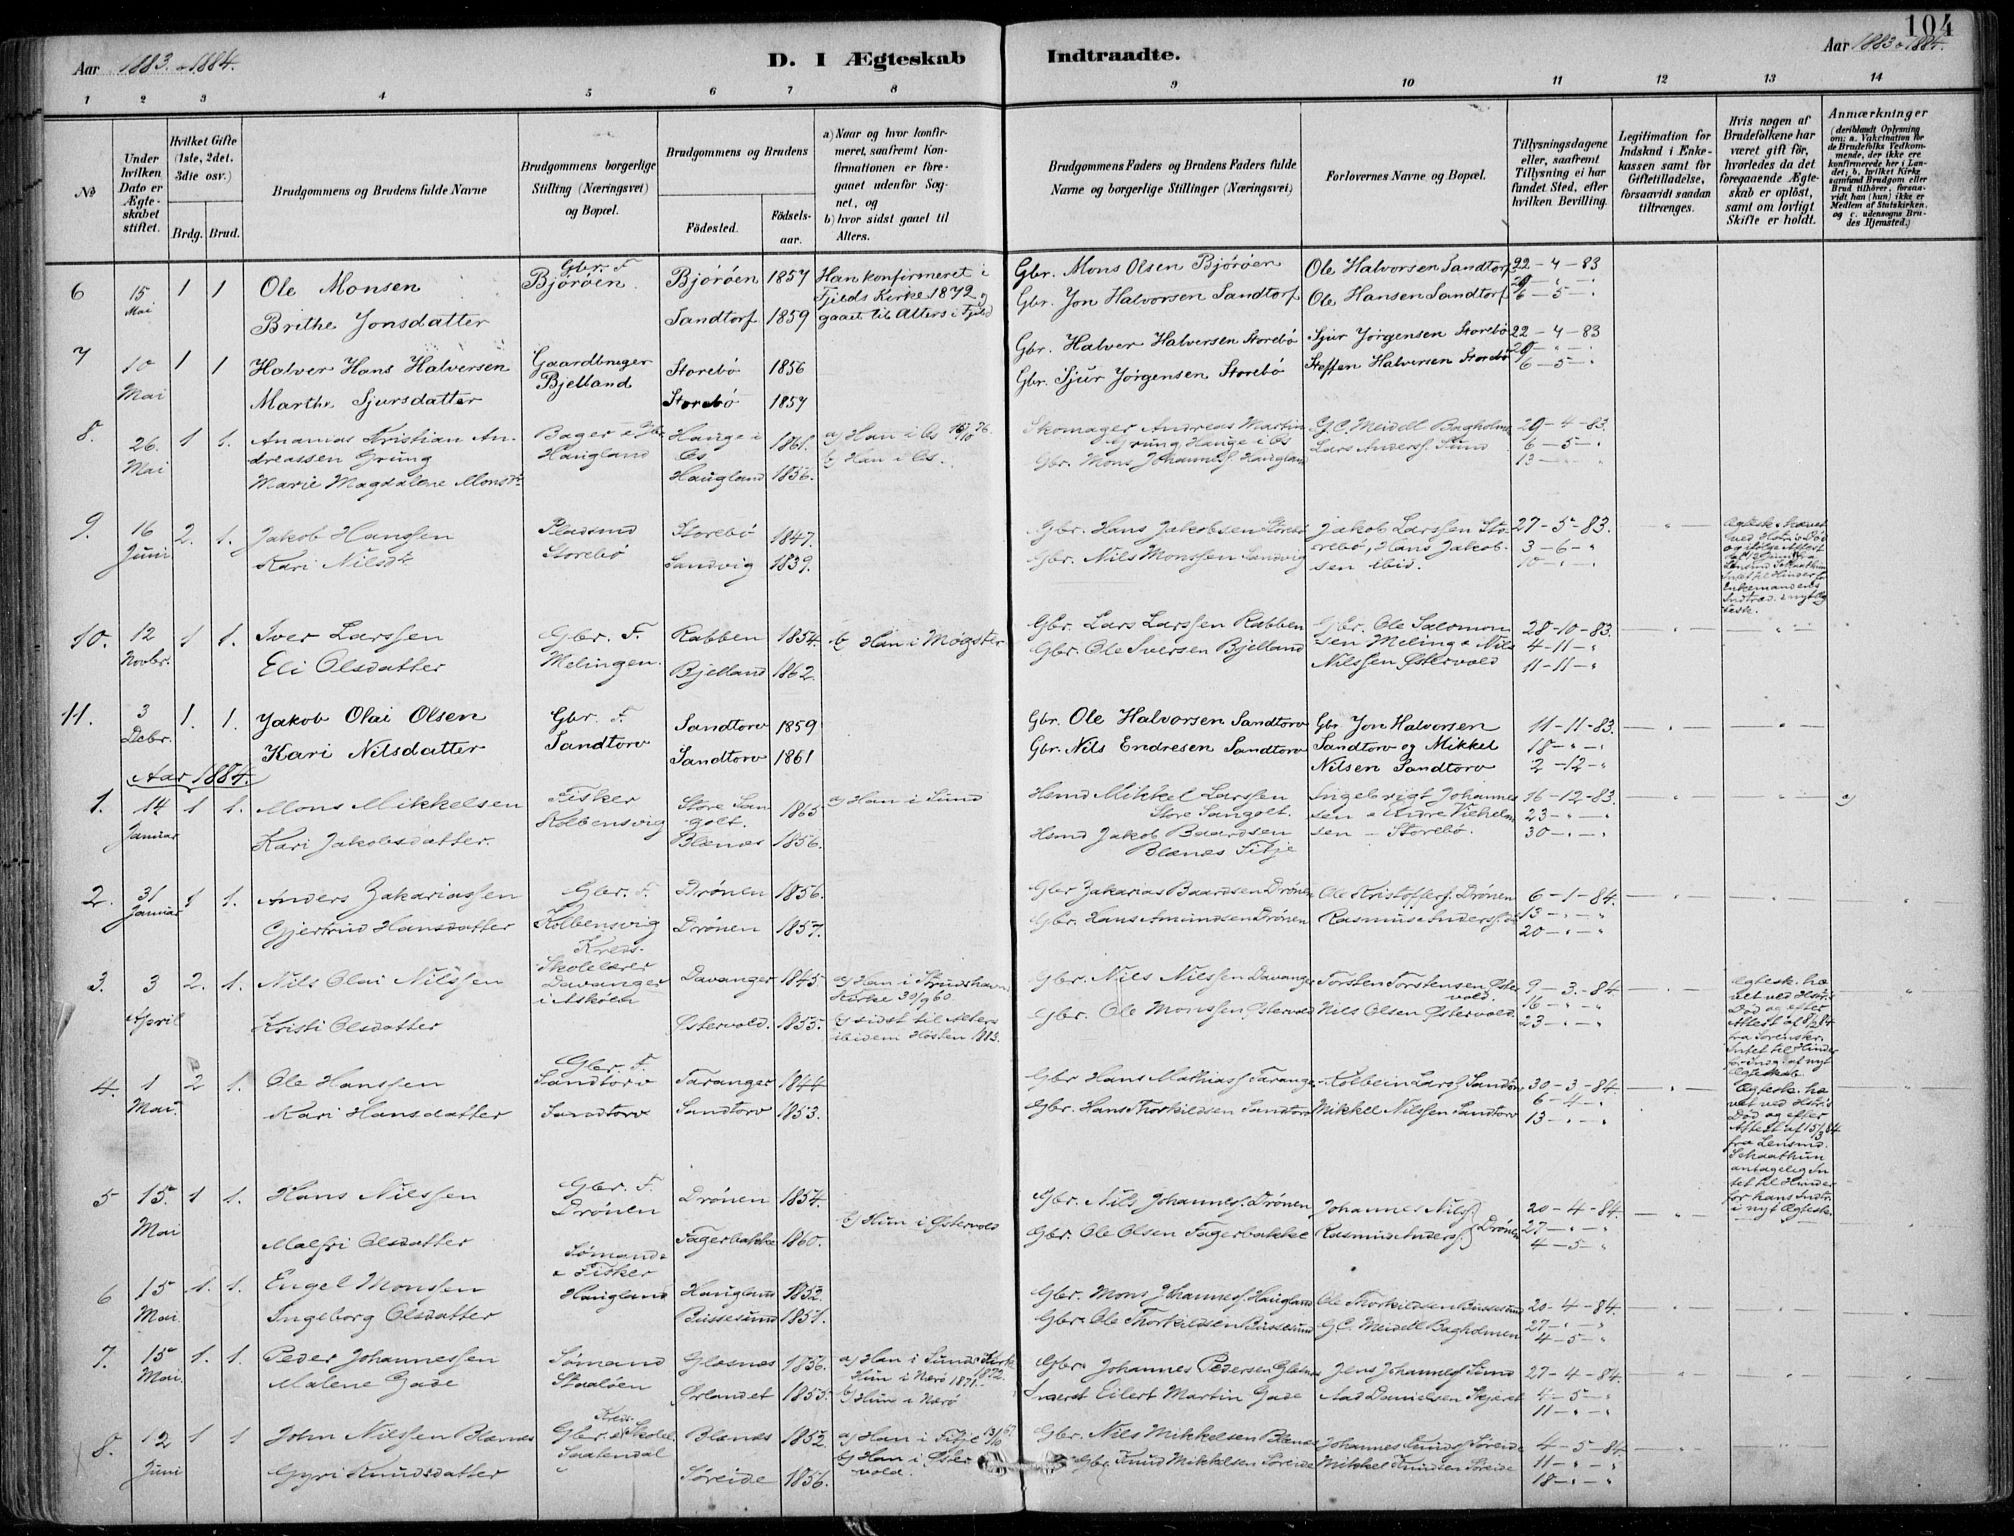 104
Aar 1883 o 1884.
D. I Ægteskab Indtraadte.
Aar 1883 o 1884.
1 2 3 4 5 6 7 8 9 10 11 12 13 14
No
Under hvilken Dato er Ægteskabet stiftet.
Hvilket Gifte (1ste, 2det, 3die osv.)
Brdg. Brud.
Brudgommens og Brudens fulde Navne
Brudgommens borgerlige Stilling (Næringsvei) og Bopæl.
Brudgommens og Brudens
Fødested.
Fødselsaar.
a) Naar og hvor konfirmeret, saafremt Konfirmationen er foregaaet udenfor Sognet, og
b) hvor sidst gaaet til Alters.
Brudgommens Faders og Brudens Faders fulde Navne og borgerlige Stillinger (Næringsvei)
Forlovernes Navne og Bopæl.
Tillysningsdagene eller, saafremt Tillysning ei har fundet Sted, efter hvilken Bevilling.
Legitimation for Indskud i Enkekassen samt for Giftetilladelse, forsaavidt saadan tiltrænges.
Hvis nogen af Brudefolkene har været gift før, hvorledes da det foregaaende Ægteskab er opløst, samt om lovligt Skifte er holdt.
Anmærkninger
(deriblandt Oplysning om: a. Vakcination for de Brudefolks Vedkommende, der ikke ere konfirmerede her i Landet; b. hvilket Kirkesamfund Brudgom eller Brud tilhører, forsaavidt han (hun) ikke er Medlem af Statskirken, og c. udensogns Brudes Hjemsted.)
6 15 Mai 1 1 Ole Monsen Gbr. F. Bjørøen Bjørøen 1857 Han konfirmeret i Fjelds Kirke 1872 og gaaet til Alters i Fjeld Gbr. Mons Olsen Bjørøen Ole Halvorsen Sandtorf 22-4-83
Brithe Jonsdatter Sandtorf 1859 Gbr. Jon Halvorsen Sandtorf Ole Hansen Sandtorf 29 - " - " 6-5- "
7 10 Mai 1 1 Halver Hans Halversen Gaardbruger Bjelland Storebø 1856 Gbr. Halver Halversen Storebø Sjur Jørgensen Storebø 22-4-83
Marthe Sjursdatter Storebø 1857 Gbr. Sjur Jørgensen Storebø Steffen Halversen Storebø 29 - " - " 6-5- "
8. 26. Mai 1 1. Ananias Kristian Andreassen Grung Bager o Gbr. Haugland Hauge i Os 1861. a) Han i Os 15/10 76. b) Han i Os. Skomager Andreas Martin Grung Hauge i Os G.C. Meidell Bagholmen 29-4-83.
Marie Magdalene Monsdtr Haugland 1856. Gbr. Mons Johanness. Haugland Lars Anderss. Sund 6-5- " 13 - " - "
9. 16 Juni 2. 1. Jakob Hanssen Pladsmd Storebø Storebø 1847. Gbr. Hans Jakobsen Storebø Jakob Larssen Storebø, Hans Jakobsen ibid. 27-5-83.
Kari Nilsdtr Sandvig 1839. Gbr. Nils Monssen Sandvig 3-6- " 10 - " - "
10. 12 Novbr. 1 1. Iver Larssen Gbr. F. Melingen. Rabben 1854. b) Han i Møgster Gbr. Lars Larssen Rabben Gbr. Ole Salomonsen Meling o Nils Nilssen Østervold 28-10-83.
Eli Olsdatter Bjelland 1862. Gbr. Ole Iversen Bjelland 4-11- " 11-11- "
11. 3 Debr. 1. 1. Jakob Olai Olsen Gbr. F. Sandtorv Sandtorv 1859 Gbr. Ole Halvorsen Sandtorv Gbr Jon Halvorsen Sandtorv og Mikkel Nilsen Sandtorv 11-11-83.
Kari Nilsdatter Sandtorv 1861 Gbr. Nils Endresen Sandtorv 18 - " - " 2-12- "
Aar 1884.
1. 14 Januar 1 1. Mons Mikkelsen Fisker Kolbensvig Store Sangolt. 1863 a) Han i Sund Hsmd Mikkel Larssen Store Sangolt. Ingebrigt Johannessen o Endre Vilhelmsen - Storebø. 16-12-83.
Kari Jakobsdatter. Blænes 1856. Hsmd Jakob Baardsen Blænes Fitje 23 - " - " 30 - " - "
2. 31 Januar 1 1. Anders Zakariassen Gbr. F. Kolbensvig Drönen 1856. Gbr Zakarias Baardsen Drönen Ole Kristoffers. Drönen 6-1-84.
Gjertrud Hansdatter Drönen 1857. Gbr. Hans Amundsen Drönen Rasmus Anderss. 13 - " - " 20 - " - "
3. 3 April 2. 1. Nils Olai Nilssen Kreds-Skolelærer Davanger i Askøen Davanger 1845 a) Han i Strudshavn Kirke 30/9 60 Gbr. Nils Nilssen Davanger Torsten Torstensen Østervold. 9-3-84.
Kristi Olsdatter Østervold. 1853. b) sidst til Alters ibidem Høsten 1883. Gbr. Ole Monssen Østervold Nils Olsen Østervold. 16 - " - " 23 - " - "
4. 1 Mai. 2 1. Ole Hanssen Gbr. F. Sandtorv Taranger 1844 Gbr Hans Mathiass. Taranger Kolbein Larss. Sandtorv 30-3-84.
Kari Hansdatter Sandtorv Sandtorv 1853. Gbr. Hans Thorkildsen Sandtorv Mikkel Nilssen Sandtorv 6-4- " 13 - " - "
5 15. Mai 1 1. Hans Nilssen Gbr. F. Drönen Drönen 1854. Gbr. Nils Johanness. Drönen Johannes Nilss. 20-4-84.
Malfri Olsdatter Fagerbakke 1860. b) Hun i Østervold Gbr. Ole Olsen Fagerbakke Rasmus Anderss. } Drönen 27 - " - " 4-5- "
6 15 Mai. 1. 1. Engel Monssen Sømand o Fisker Haugland Haugland 1852. Gbr. Mons Johanness. Haugland Ole Thorkildsen Bussesund 20-4-84.
Ingeborg Olsdatter Bussesund 1857. Gbr. Ole Thorkildsen Bussesund G.C. Meidell Bagholmen 27 - " - " 4-5- "
7. 15 Mai. 1. 1. Peder Johannessen Sømand Staaløen Glæsnæs 1856. a) Han i Sunds Kirke 1872. Gbr. Johannes Pedersen Glæsnæs Jens Johanness. Sund 27-4-84.
Malene Gade Ørlandet 1855. Hun i Nærø 1871. b) Hun i Nærø Eilert Martin Gade Aad Danielsen Skjeret 4-5- " 11 - " - "
8. 12 Juni 1 1 John Nilssen Blænes Gbr. o Kreds-Skolel. Saatendal Blænes 1852. a) Han i Fitje b) Han i Østervold. Gbr. Nils Mikkelsen Blænes Johannes Knudss. Søreide 4-5-84.
Gyri Knudsdatter Søreide 1856. Gbr. Knud Mikkelsen Søreide Mikkel Knudsen Søreide 11 - " - " 18 - " - "